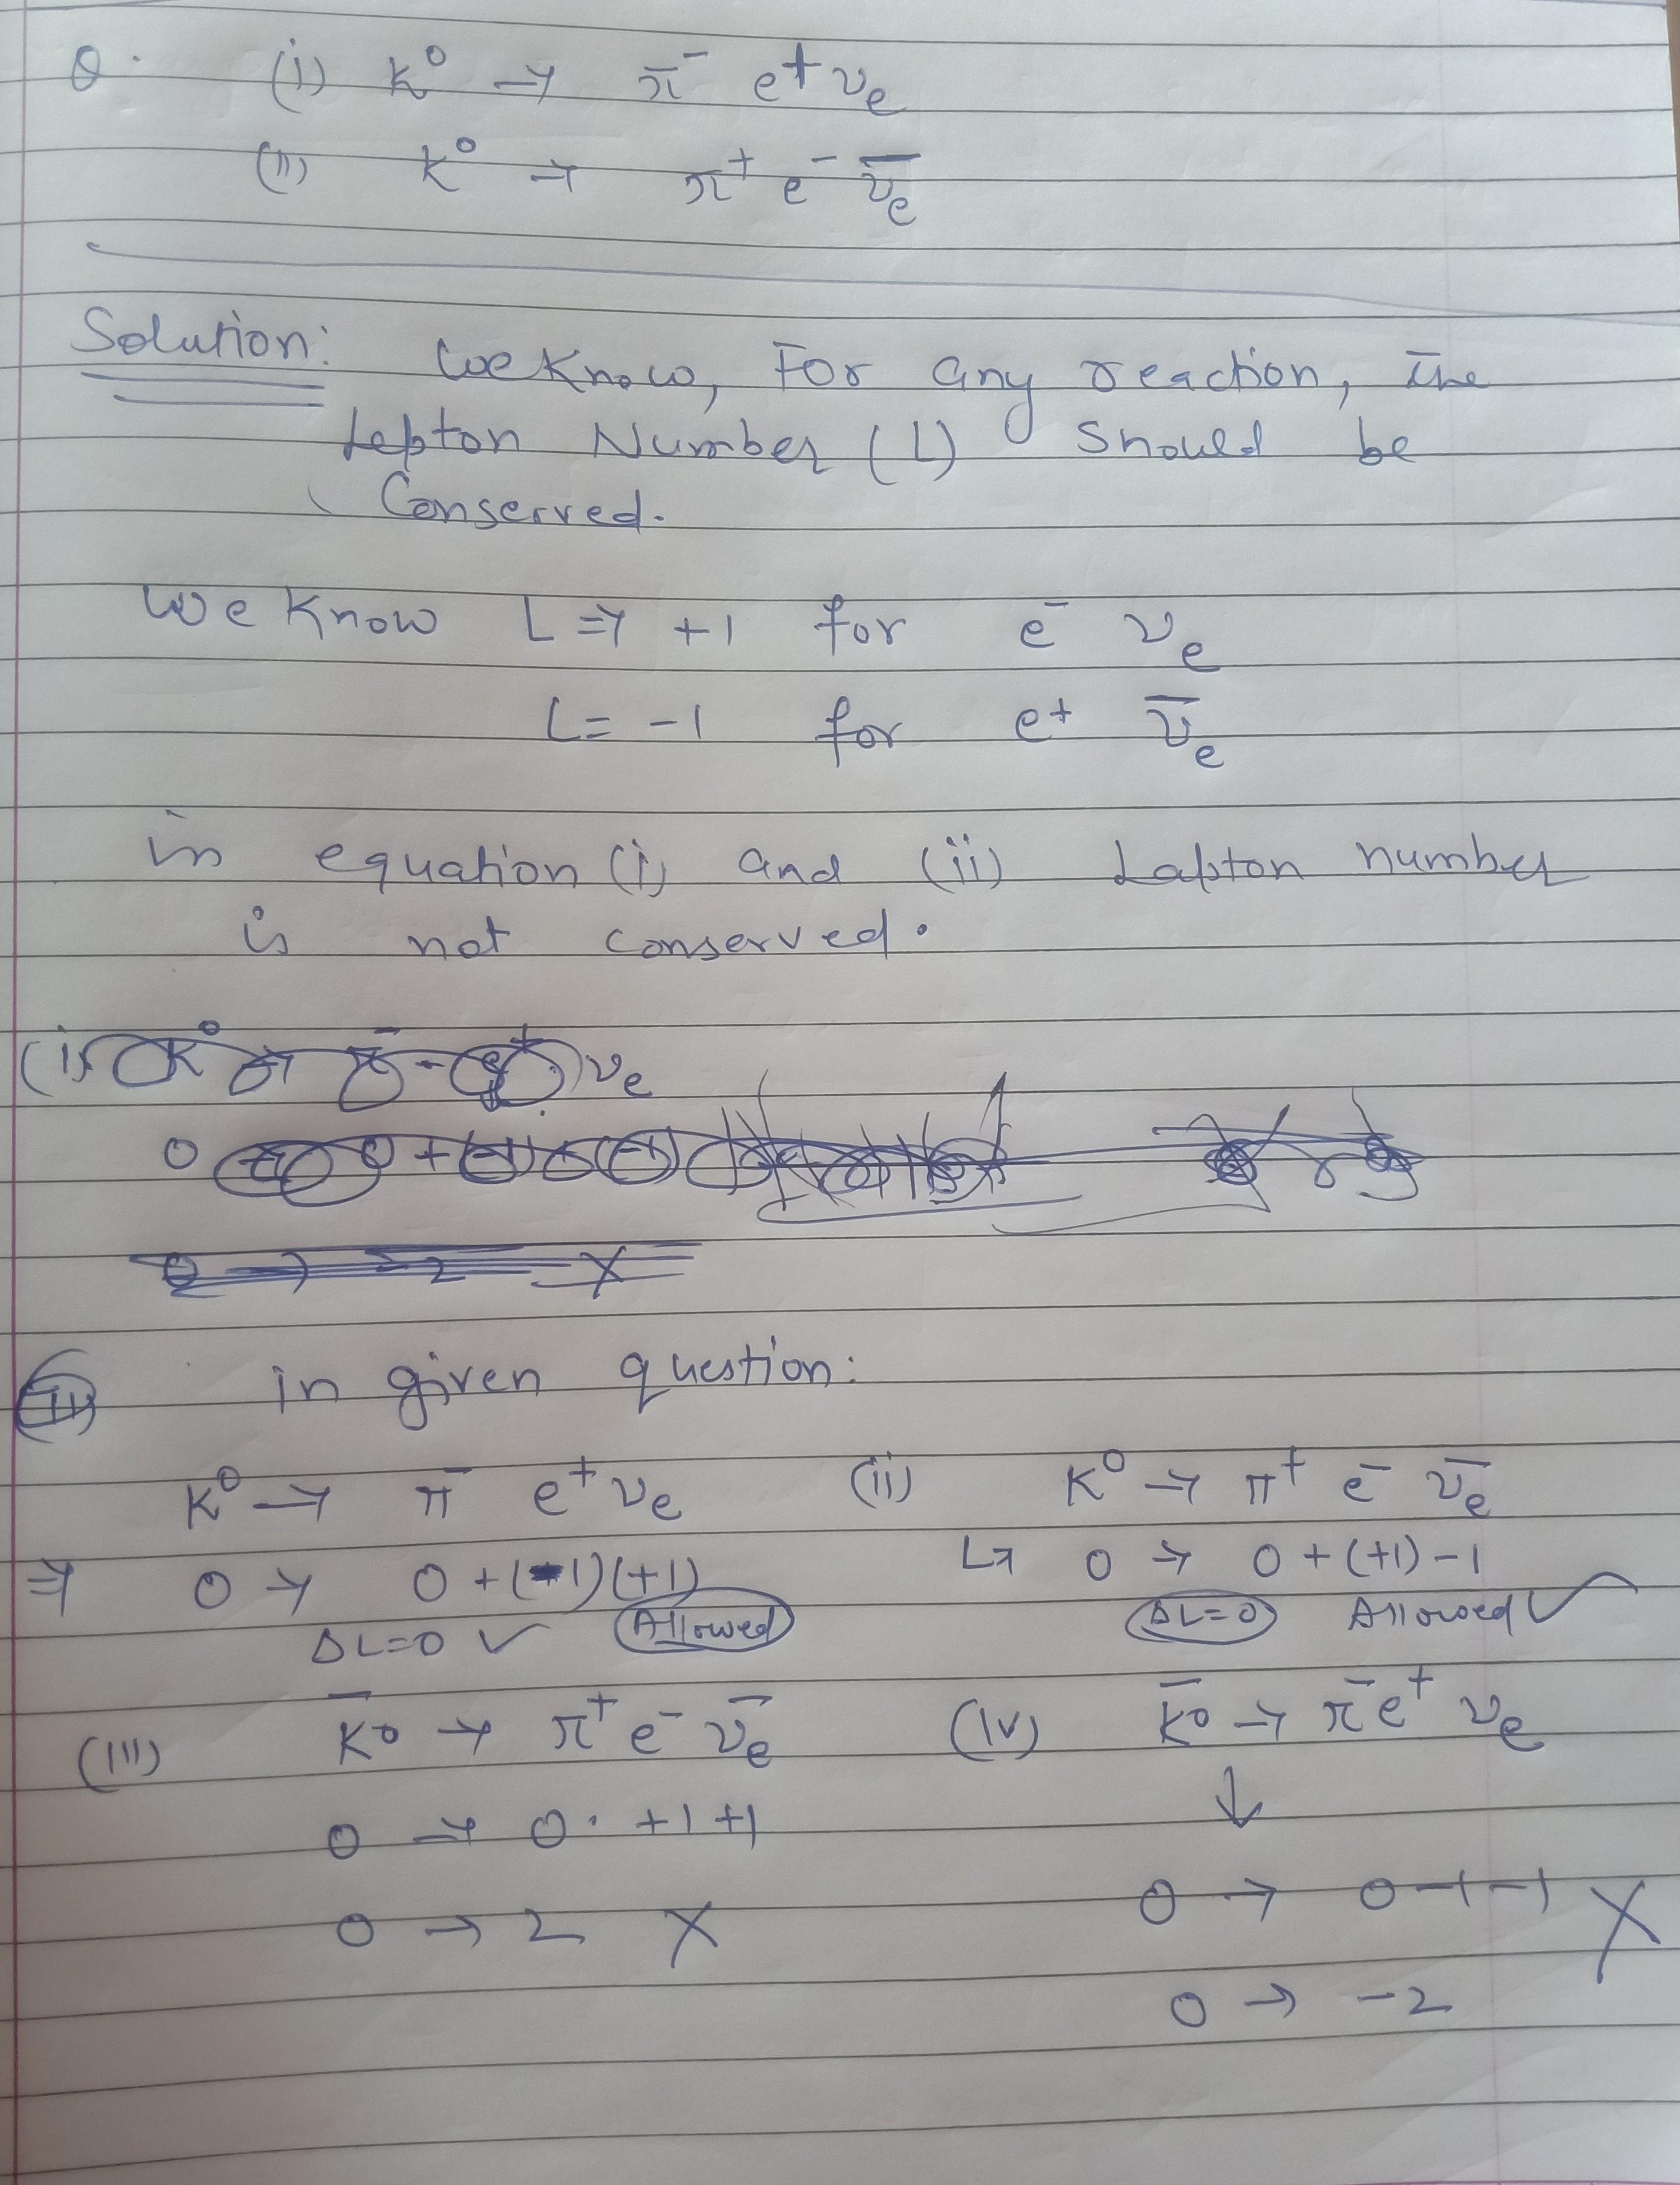 Q. (i) K⁰ → π⁻ e⁺ νₑ
(ii) K⁰ → π⁺ e⁻ ν̅ₑ
Solution: We Know, For any reaction, The
Lepton Number (L) Should be
Conserved.
We Know L ⇒ +1 for e⁻ νₑ
L = -1 for e⁺ ν̅ₑ
in equation (i) and (ii) Lapton number
is not conserved.
(i) K⁰ → π⁻ e⁺ νₑ
0
0 → -2 X
(ii) in given question:
K⁰ → π⁻ e⁺ νₑ (ii) K⁰ → π⁺ e⁻ ν̅ₑ
⇒ 0 → 0 + (-1)(+1) L→ 0 → 0 + (+1) - 1
ΔL=0 ✓ Allowed ΔL=0 Allowed ✓
(III) K̅⁰ → π⁺ e⁻ ν̅ₑ (IV) K̅⁰ → π⁻ e⁺ νₑ
0 → 0 · +1 +1 ↓
0 → 2 X 0 → 0 -1 -1 X
0 → -2